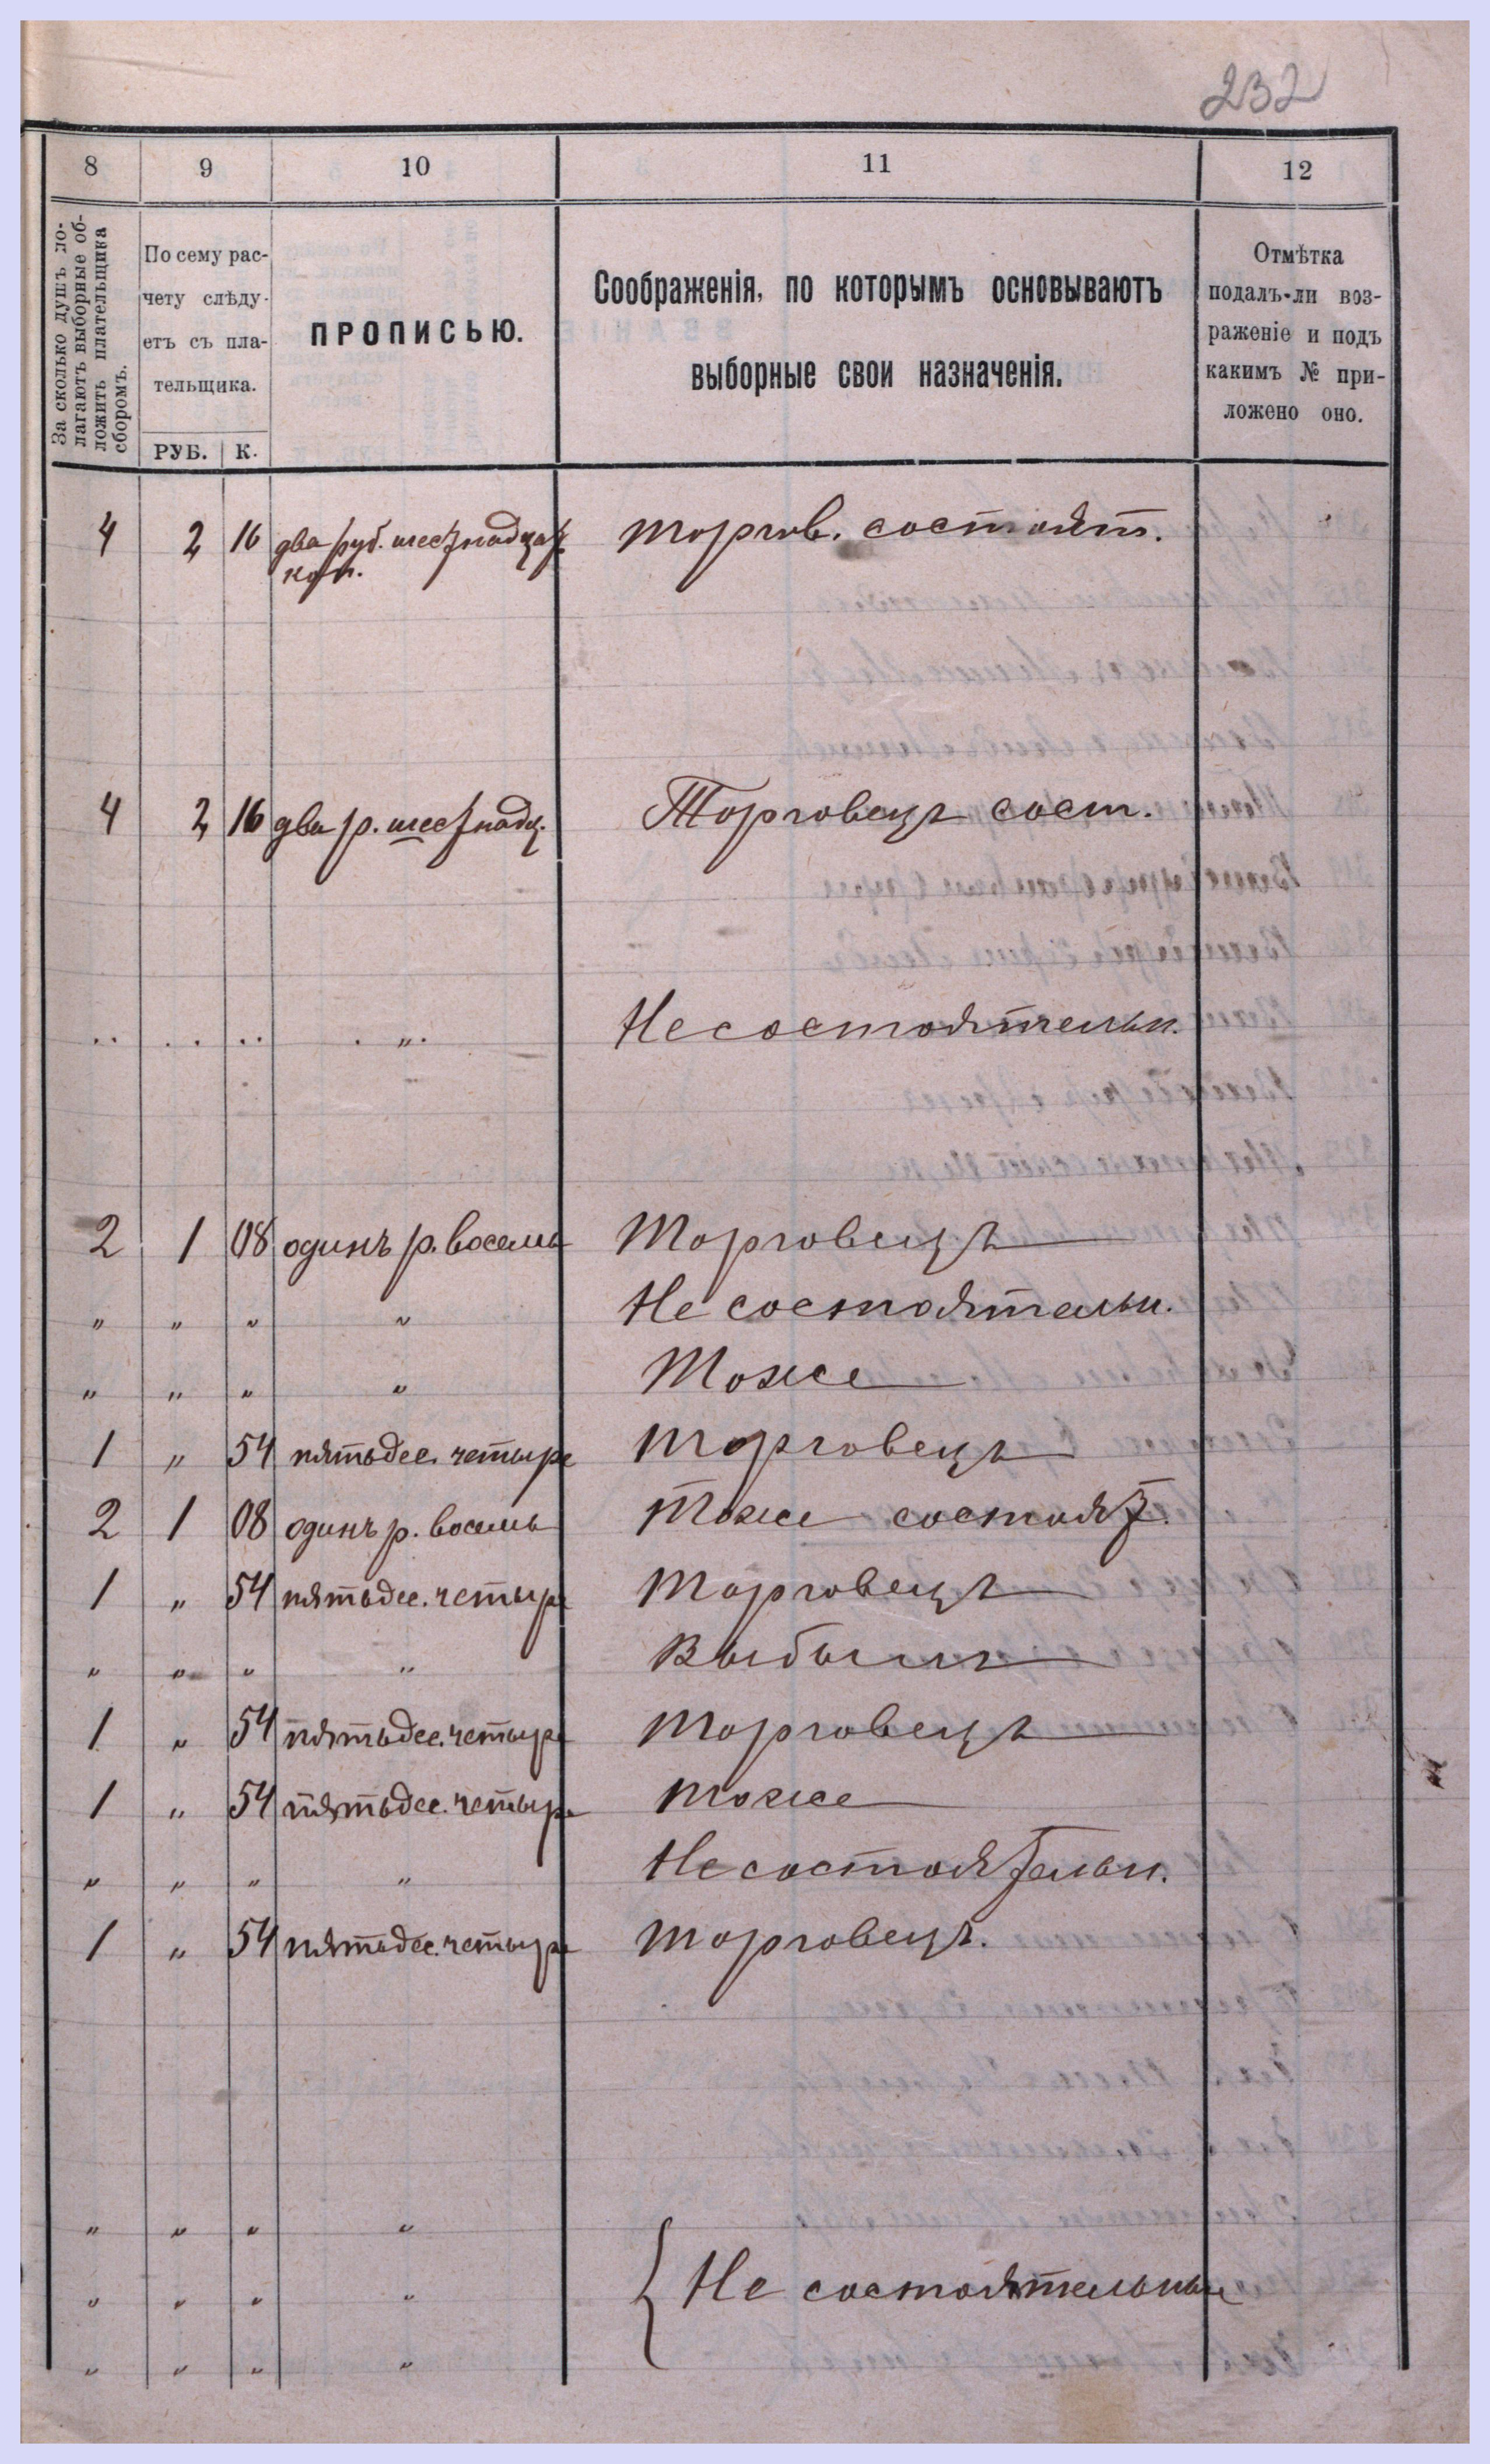 232
8 9 10 11 12
За сколько душъ по-
лагаютъ выборные об-
ложить плательщика
сборомъ.
По сему рас-
чету слѣду-
етъ съ пла-
тельщика.
РУБ. К.
ПРОПИСЬЮ.
Соображенія, по которымъ основываютъ
выборные свои назначенія.
Отмѣтка
подалъ-ли воз-
раженіе и подъ
какимъ № при-
ложено оно.
4 2 16 два руб. шестнадцать торгов. состоят.
коп.
4 2 16 два р. шестнадц. Торговецъ сост.
.. .. .. . „ . Несостоятельн.
2 1 08 одинъ р. восемь Торговецъ
„ „ „ „ Не состоятельн.
„ „ „ „ Тоже
1 „ 54 пятьдес. четыре торговецъ
2 1 08 одинъ р. восемь тоже состоят.
1 „ 54 пятьдес. четыре торговецъ
„ „ „ „ Выбылъ
1 „ 54 пятьдес. четыре торговецъ
1 „ 54 пятьдес. четыре тоже
„ „ „ „ Не состоятельн.
1 „ 54 пятьдес. четыре торговецъ.
„ „ „ „
„ „ „ „ Не состоятельные
„ „ „ „